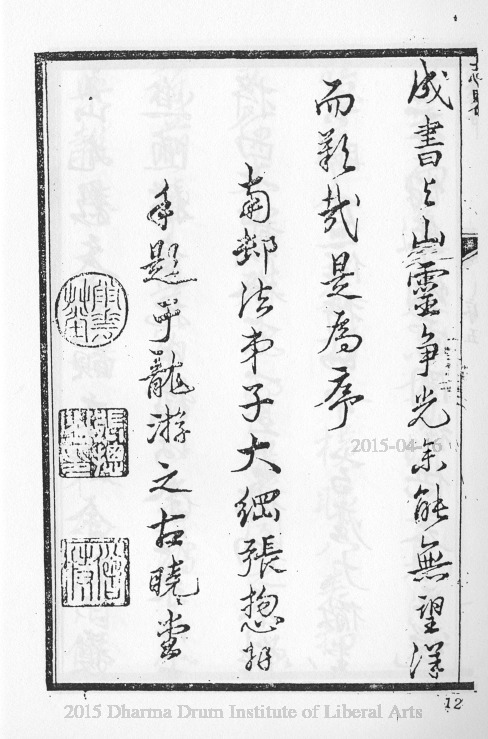 成書與山靈爭光余能無望洋
而歎哉是為序
南郵法弟子大綱張惣
手題于龍游之古曉堂
12
2015-04-16
2015 Dharma Drum Institute of Liberal Arts